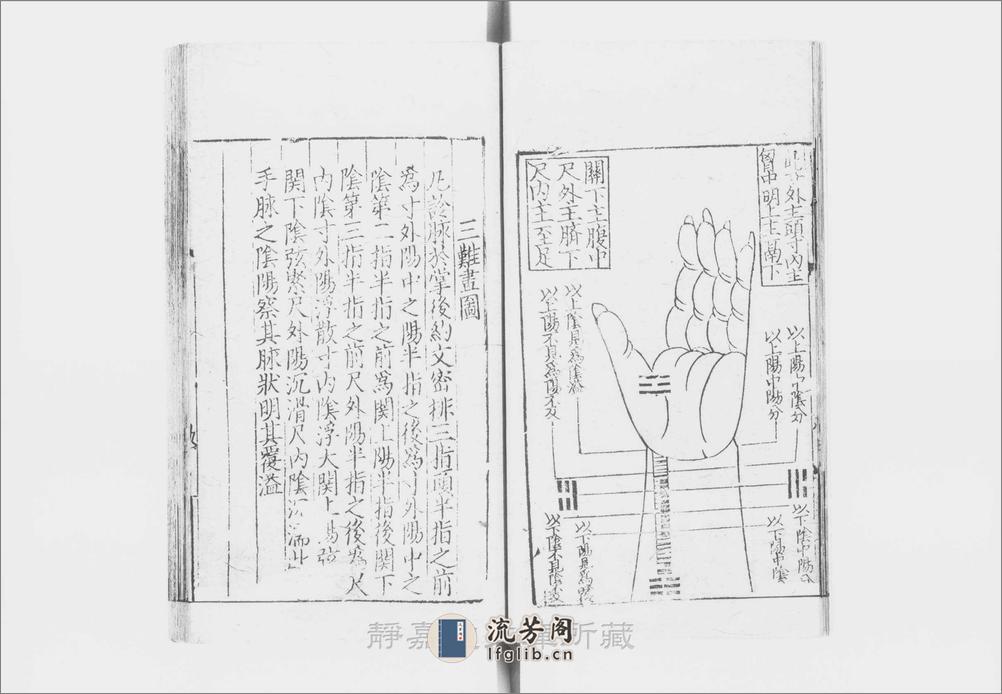 外主頭寸內主
胷中 明上主鬲下
關下主腹中
尺外主臍下
尺內主至足
以上陽中陰分
以上陽中陽分
以上陰
以上陽不
以下陰中陽
以下陽中陰
以下陽
以下陰不見陰
三難畫圖
凡診脉於掌後約文密排三指頭半指之前
爲寸外陽中之陽半指之後爲寸外陽中之
陰第二指半指之前爲関上陽半指後関下
陰第三指半指之前尺外陽半指之後爲尺
內陰寸外陽浮散寸內陰浮大関上陽弦
関下陰弦緊尺外陽沉滑尺內陰沉濡此
手脉之陰陽察其脉狀明其覆溢
靜嘉堂文庫所藏
流芳阁
lfglib.cn